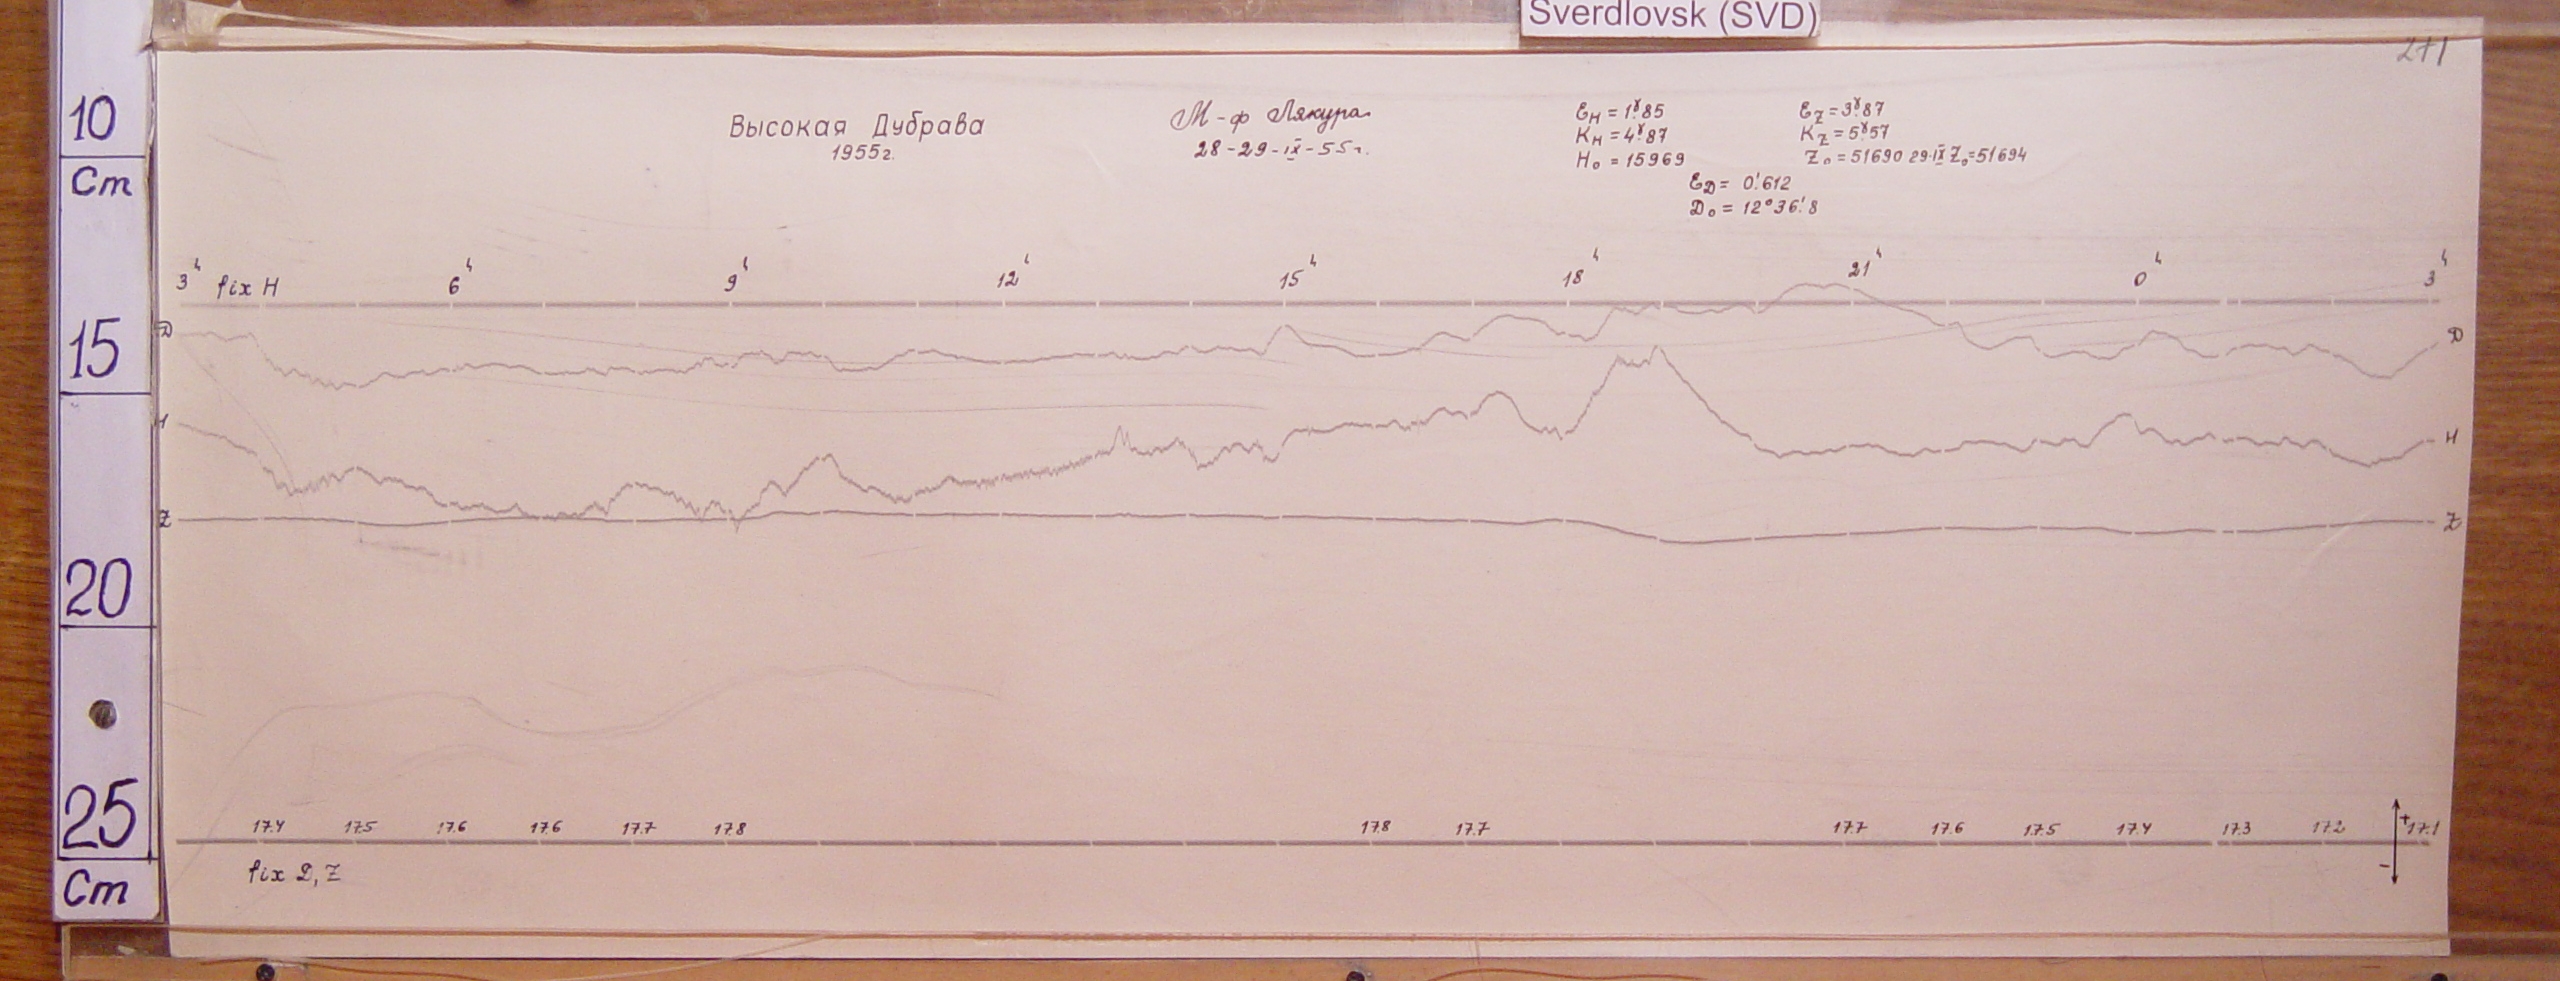 Sverdlovsk (SVD)
271
10
Cm
15
20
25
Cm
Высокая Дубрава
1955г.
М-ф Лякура
28-29-IX-55г.
Ɛн = 1ᵞ.85
Kн = 4ᵞ.87
H₀ = 15969
Ɛz = 3ᵞ.87
Kz = 5ᵞ.57
Z₀ = 51690 29.IX Z₀=51694
ƐD = 0.'612
D₀ = 12°36.'8
3ʰ fix H 6ʰ 9ʰ 12ʰ 15ʰ 18ʰ 21ʰ 0ʰ 3ʰ
D D
H H
Z Z
17.4 17.5 17.6 17.6 17.7 17.8 17.8 17.7 17.7 17.6 17.5 17.4 17.3 17.2 + 17.1
fix D, Z -